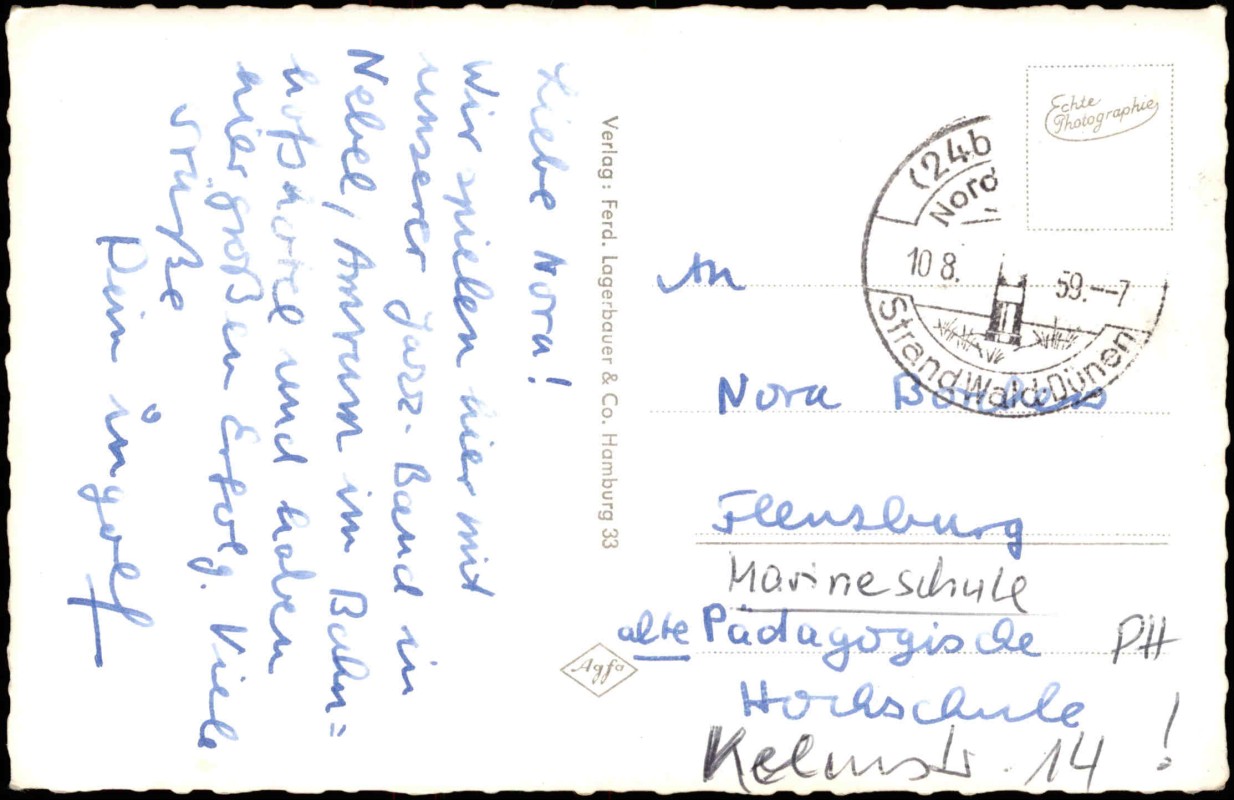 Liebe Nora!
Wir spielen hier mit
unserer Jazz-Band in
Nebel/Amrum im Bahn=
hofshotel und haben
hier großen Erfolg. Viele
Grüße
Dein Ingolf
Verlag: Ferd. Lagerbauer & Co. Hamburg 33
Agfa
Echte
Photographie
(24b
Nord
10 8. 59.--7
Strand Wald Dünen
An
Nora
Flensburg
Marineschule
alte Pädagogische PH
Hochschule !
Kelmstr. 14